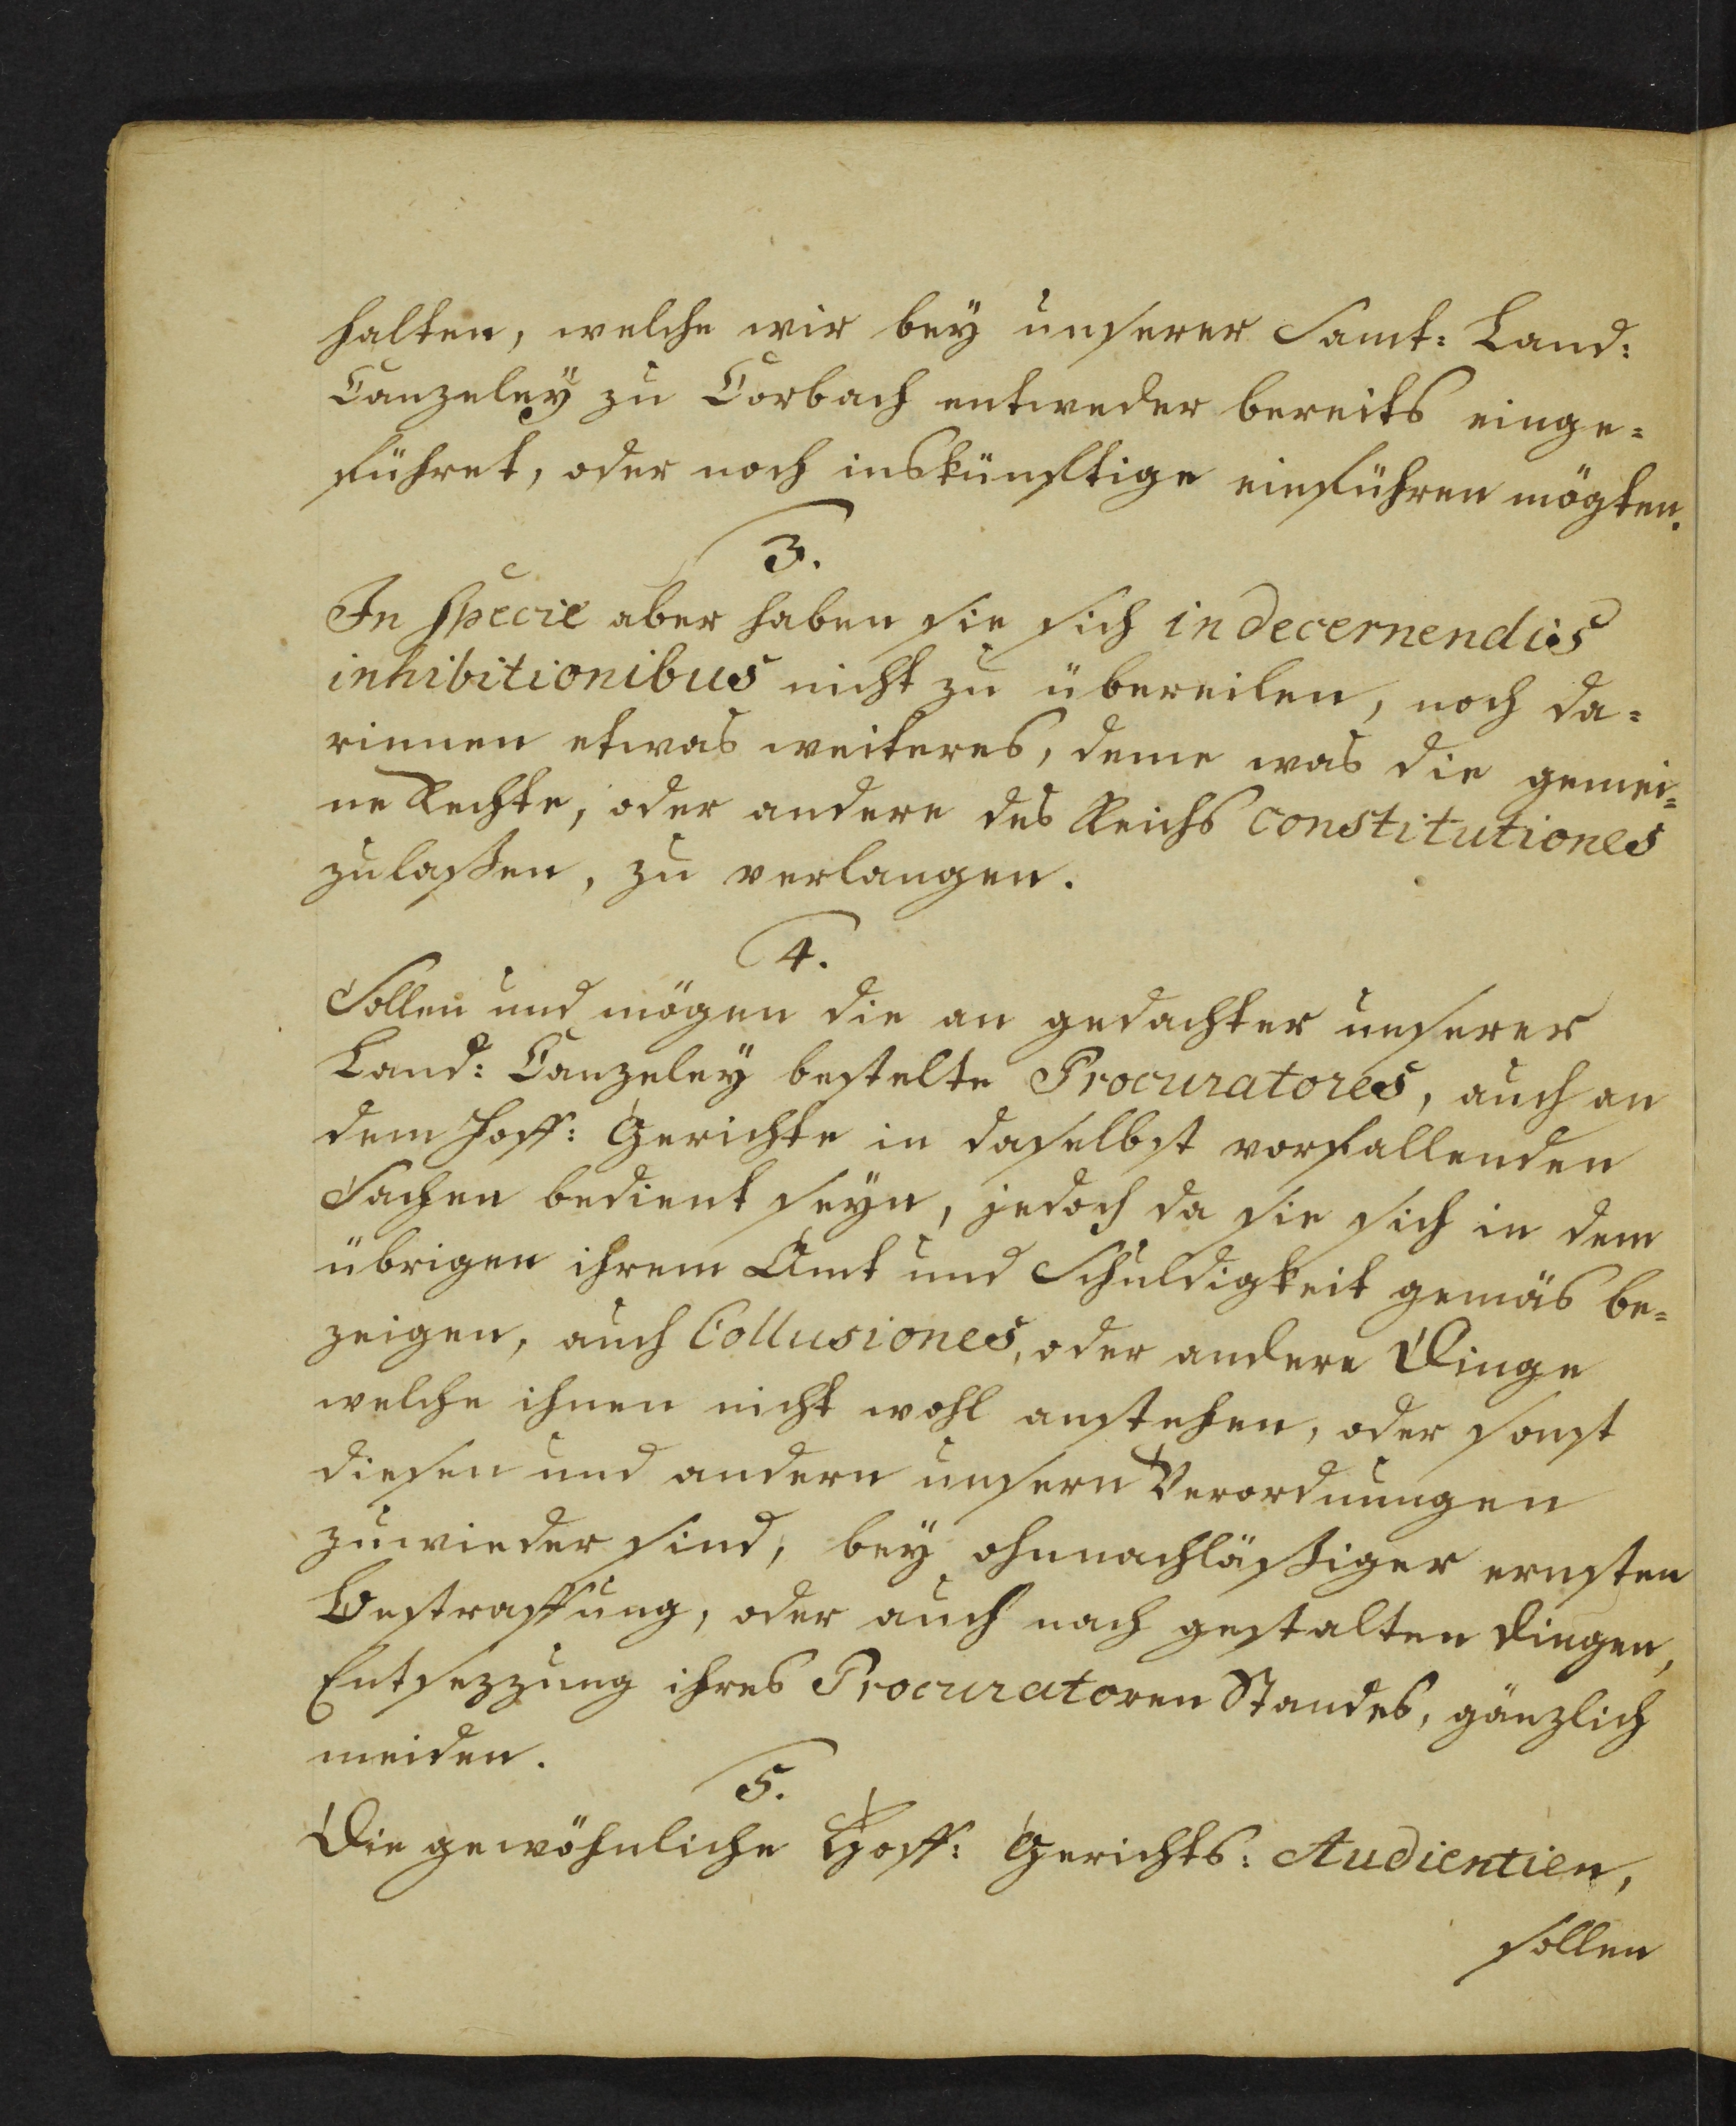 halten, welche wir bey unserer Samt: Land:
Canzeley zu Corbach entweder bereits einge=
führet, oder noch inskünftige einführen mögten.
3.
In specie aber haben sie sich in decernendis
inhibitionibus nicht zu übereilen, noch da=
rinnen etwas weiteres, deme was die gemei=
ne Rechte, oder andere des Reichs constitutiones
zulaßen, zu verlangen.
4.
Sollen und mögen die an gedachter unserer
Land: Canzeley bestelte Procuratores, auch an
dem Hoff: Gerichte in daselbst vorfallenden
Sachen bedient seyn, jedoch da sie sich in dem
übrigen ihrem Amt und Schuldigkeit gemäs be=
zeigen, auch Collusiones, oder andere Dinge
welche ihnen nicht wohl anstehen, oder sonst
diesen und andern unsern Verordnungen
zuwieder sind, bey ohnnachläßiger ernsten
Bestraffung, oder auch nach gestalten dingen,
Entsezzung ihres Procuratoren Standes, gänzlich
meiden.
5.
Die gewöhnliche Hoff: Gerichts: Audientien,
sollen